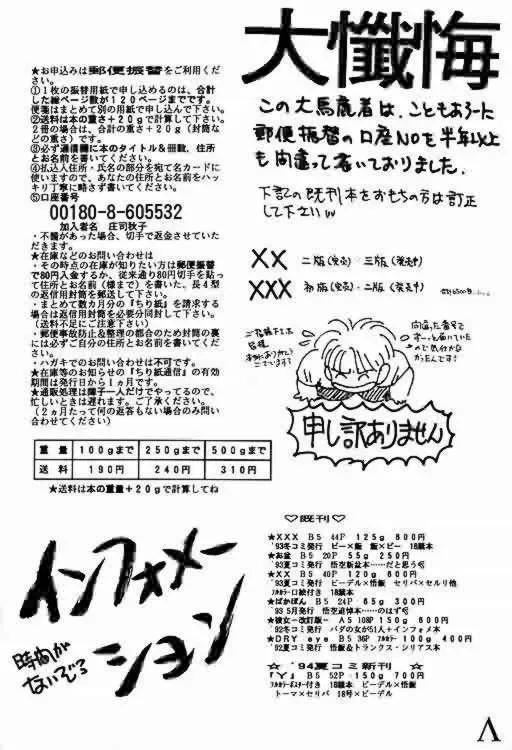 大懺悔
この大馬鹿者は、こともあろーに
郵便振替の口座NOを半年以上
も間違って書いておりました。
下記の既刊本をおもちの方は訂正
して下さいw
XX 二版(完売)・三版(発売中)
XXX 初版(完売)・二版(発売中)
ご指摘下さった
皆様
本当にありがとう
ございます!!
間違った番号で
ずーっと届いていた
ので気付かな
かったんです!
申し訳ありません
★お申込みは郵便振替をご利用くだ
さい。
①1枚の振替用紙で申し込めるのは、合計
した総ページ数が120ページまでです。
便箋等はまとめて別の用紙で申し込んで下さい。
②送料は本の重さ+20gで計算して下さい。
2冊の場合は、合計の重さ+20g(封筒な
どの重さ)です。
③必ず通信欄に本のタイトル&冊数、住所
とお名前を書いてください。
④払込人住所・氏名の部分を宛て名カードに
使いますので、あなたの住所とお名前をハッ
キリ丁寧に略さず書いてください。
⑤口座番号
00180-8-605532
加入者名 庄司秋子
・不備があった場合、切手で返金させていた
だきます。
★在庫などのお問い合わせは
・その時点の在庫が知りたい方は郵便振替
で80円入金するか、従来通り80円切手を貼っ
て住所とお名前(様まで)を書いた、長4型
の返信用封筒を郵送して下さい。
・まとめて数カ月分の『ちり紙』を請求する
場合は返信用封筒を必要分同封して下さい。
(送料不足にご注意下さい)
・郵便事故防止&整理の都合のため封筒の裏
には必ずご自分の住所とお名前を書いてくだ
さい。
・ハガキでのお問い合わせは不可です。
★在庫等のお知らせの『ちり紙通信』の有効
期間は発行日から1ヵ月です。
★通販処理は障子一人だけでやってるので、
忙しいときは遅れます。ご了承ください。
(2ヵ月たって何の返答もない場合のみ問い
合わせてください)
重量 100gまで 250gまで 500gまで
送料 190円 240円 310円
★送料は本の重量+20gで計算してね
インフォメー
ション
時間が
ないぞう
♡既刊♡
★XXX B5 44P 125g 600円
'93冬コミ発行 ビー×飯 飯×ビー 18禁本
★お盆 B5 20P 55g 250円
'93夏コミ発行 悟空新盆本……だと思う
★XX B5 40P 120g 600円
'93夏コミ発行 ビーデル×悟飯 セリパ×セルリ他
フルカラー口絵付き 18禁本
★ばかぼん B5 24P 65g 300円
'93 5月発行 悟空追悼本……のはず
★彼女-改訂版- A5 108P 150g 600円
'92冬コミ発行 バダの女が51人+インフォメ本
★DRY eye B5 36P フルカラー 100g 400円
'92夏コミ発行 悟飯&トランクス・シリアス本
☆ '94夏コミ新刊 ☆
『Y』 B5 52P 150g 700円
フルカラーポスター付き 18禁本 ビーデル×悟飯
トーマ×セリパ 18号×ビーデル